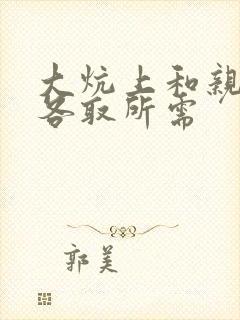 大炕上和親
各取所需
郭美